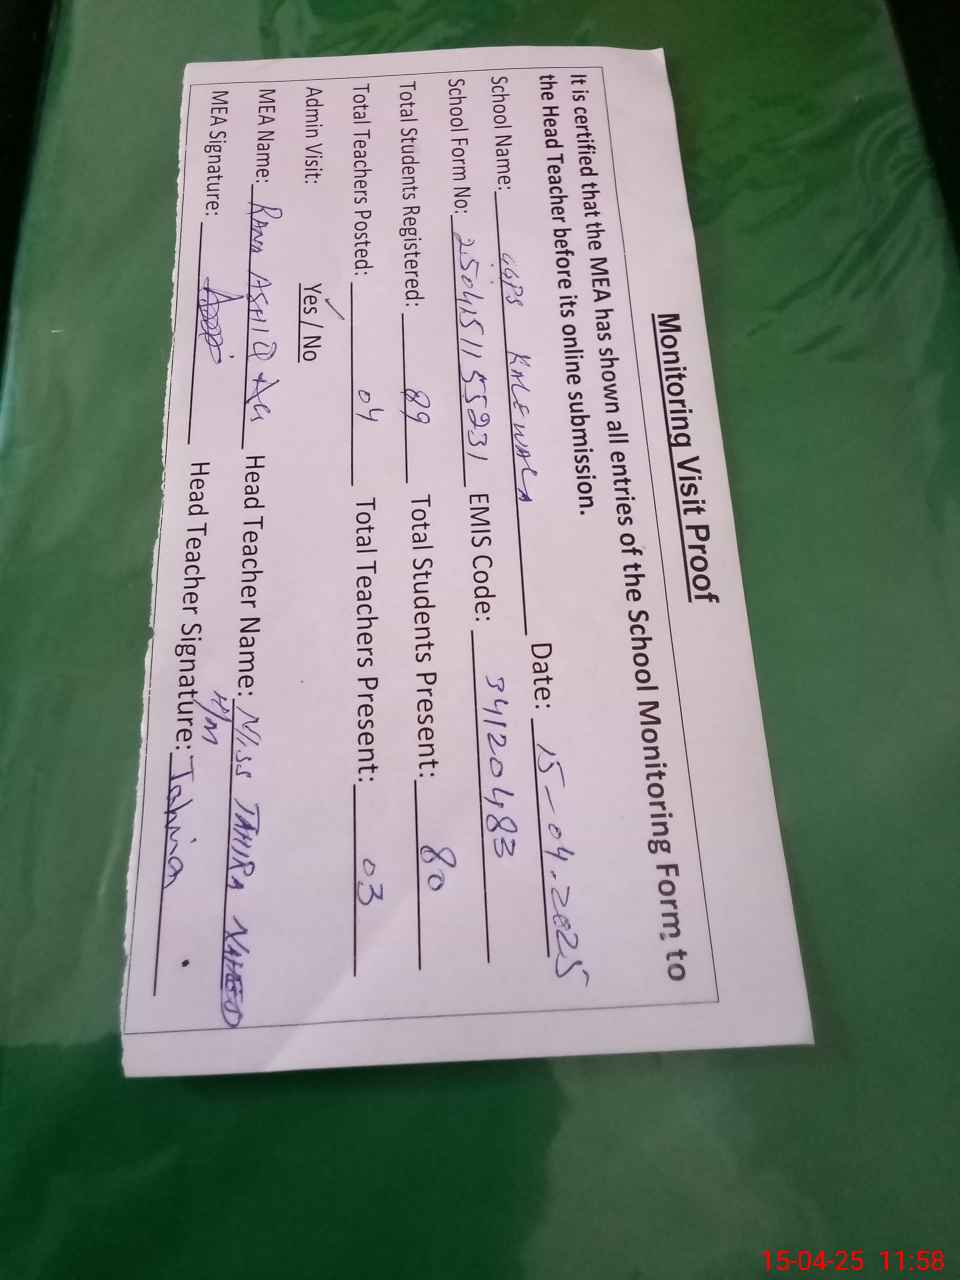 Monitoring Visit Proof
It is certified that the MEA has shown all entries of the School Monitoring Form to
the Head Teacher before its online submission.
School Name: GGPS Date: 15-04-2025
School Form No: EMIS Code: 34120483
Total Students Registered: 89 Total Students Present: 80
Total Teachers Posted: 04 Total Teachers Present: 03
Admin Visit: Yes / No
MEA Name: RANA Head Teacher Name: Miss TAHIRA NAHEED
H/M
MEA Signature: Head Teacher Signature: Tahira
15-04-25 11:58